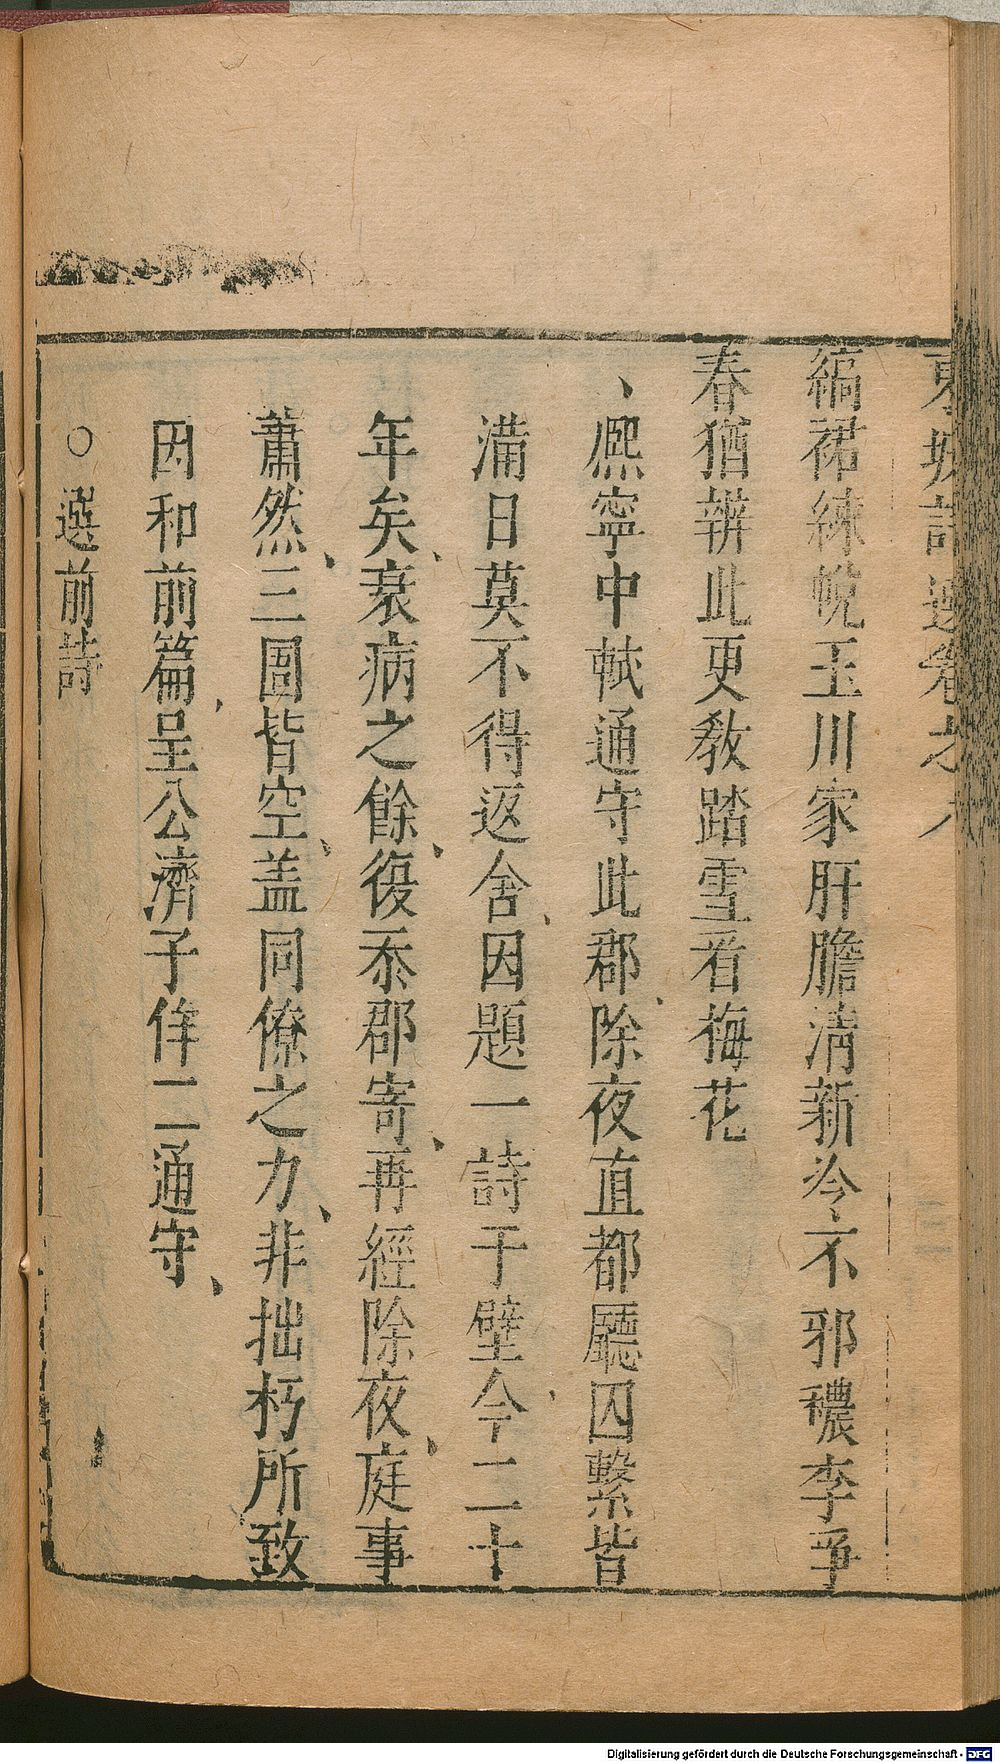 東坡詩選卷之八
縞裙練帨玉川家肝膽清新冷不邪穠李爭
春猶辨此更教踏雪看梅花
、熈寧中軾通守此郡、除夜直都廳囚繫皆
滿日莫不得返舍、因題一詩于壁、今二十
年矣、衰病之餘、復忝郡寄、再經除夜、庭事
蕭然、三圄皆空、盖同僚之力、非拙朽所致
因和前篇、呈公濟子侔二通守、
○選前詩
Digitalisierung gefördert durch die Deutsche Forschungsgemeinschaft - DFG